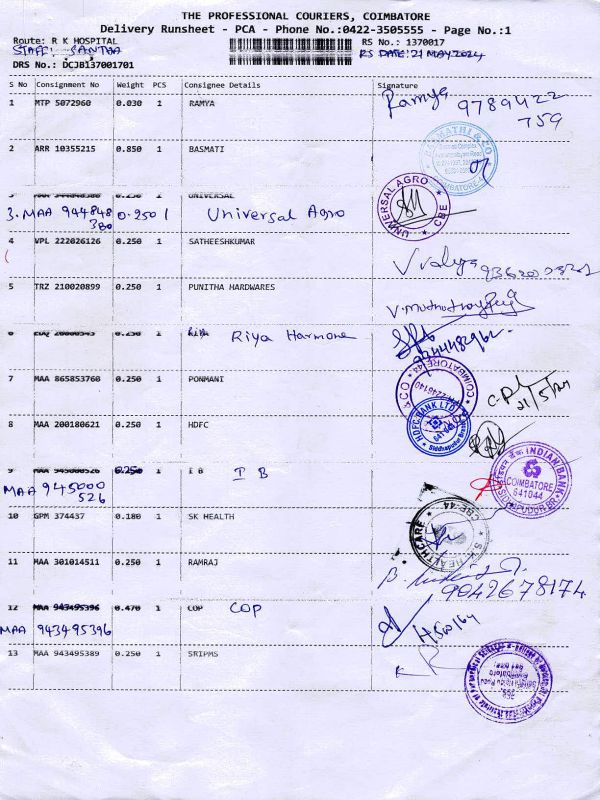 THE PROFESSIONAL COURIERS, COIMBATORE
Delivery Runsheet - PCA - Phone No.:0422-3505555 - Page No.:1
Route: R K HOSPITAL RS No.: 1370017
STAFF: SANTHA RS DATE: 21 MAY 2024
DRS No.: DCJB137001701
S No Consignment No Weight PCS Consignee Details Signature
1 MTP 5072960 0.030 1 RAMYA Ramya 9789422
759
2 ARR 10355215 0.850 1 BASMATI
COIMBATORE
3 UNIVERSAL
3. MAA 944848 0.250 1 Universal Agro
380
UNIVERSAL AGRO CBE
4 VPL 222026126 0.250 1 SATHEESHKUMAR
5 TRZ 210020899 0.250 1 PUNITHA HARDWARES
6 0.250 1 Riya Harmone
9244482962
7 MAA 865853760 0.250 1 PONMANI
& CO COIMBATORE-44
21/5/24
8 MAA 200180621 0.250 1 HDFC
HDFC BANK LTD
9 MAA 945000526 0.250 1 I B I B
MAA 945000
526
INDIAN BANK
COIMBATORE
641044
SIDDHAPUDUR BR
10 GPM 374437 0.180 1 SK HEALTH
S K HEALTHCARE CBE-44
11 MAA 301014511 0.250 1 RAMRAJ
9042678174
12 MAA 943495396 0.470 1 COP COP
MAA 943495396
13 MAA 943495389 0.250 1 SRIPMS